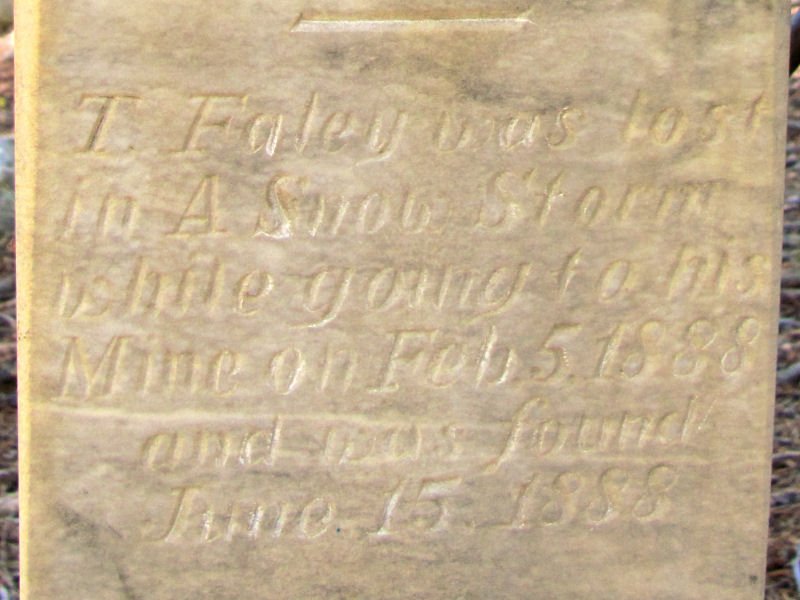 T. Faley was lost
in A Snow Storm
while going to his
Mine on Feb. 5. 1888
and was found
June 15. 1888